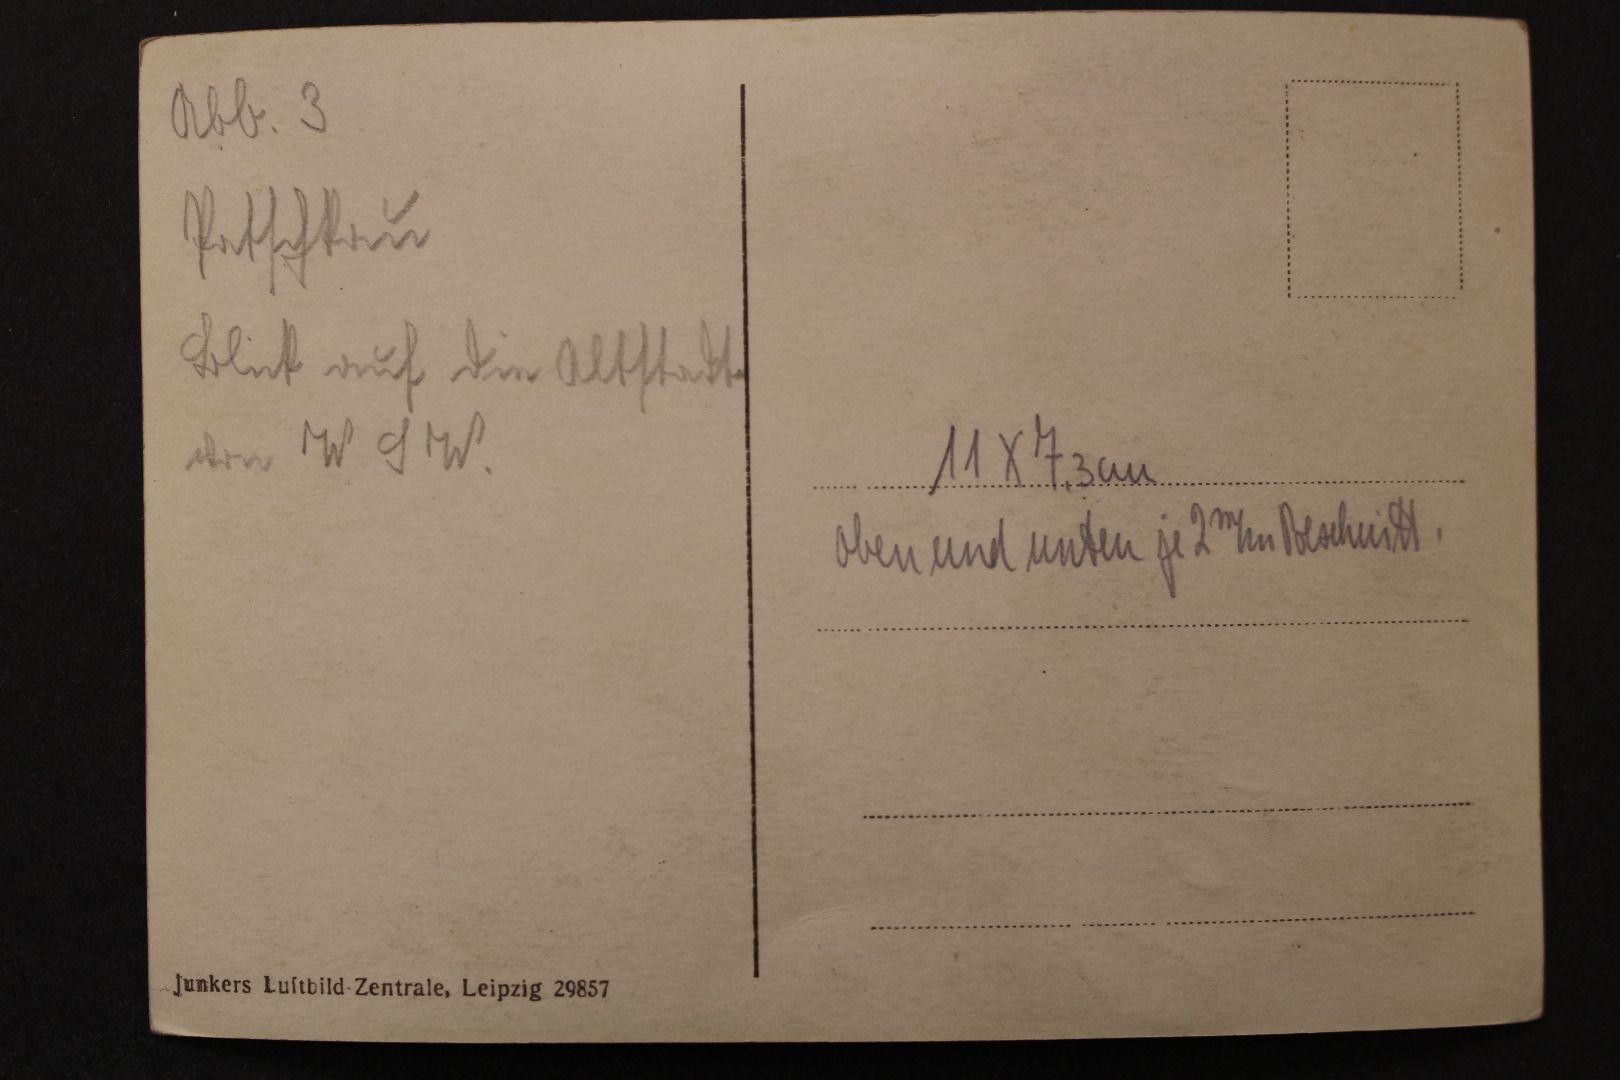 Abb. 3
Patschkau
Blick auf die Altstadt
von W S W.
11 X 7,3 cm
oben und unten je 2 m/m Beschnitt.
Junkers Luftbild-Zentrale, Leipzig 29857